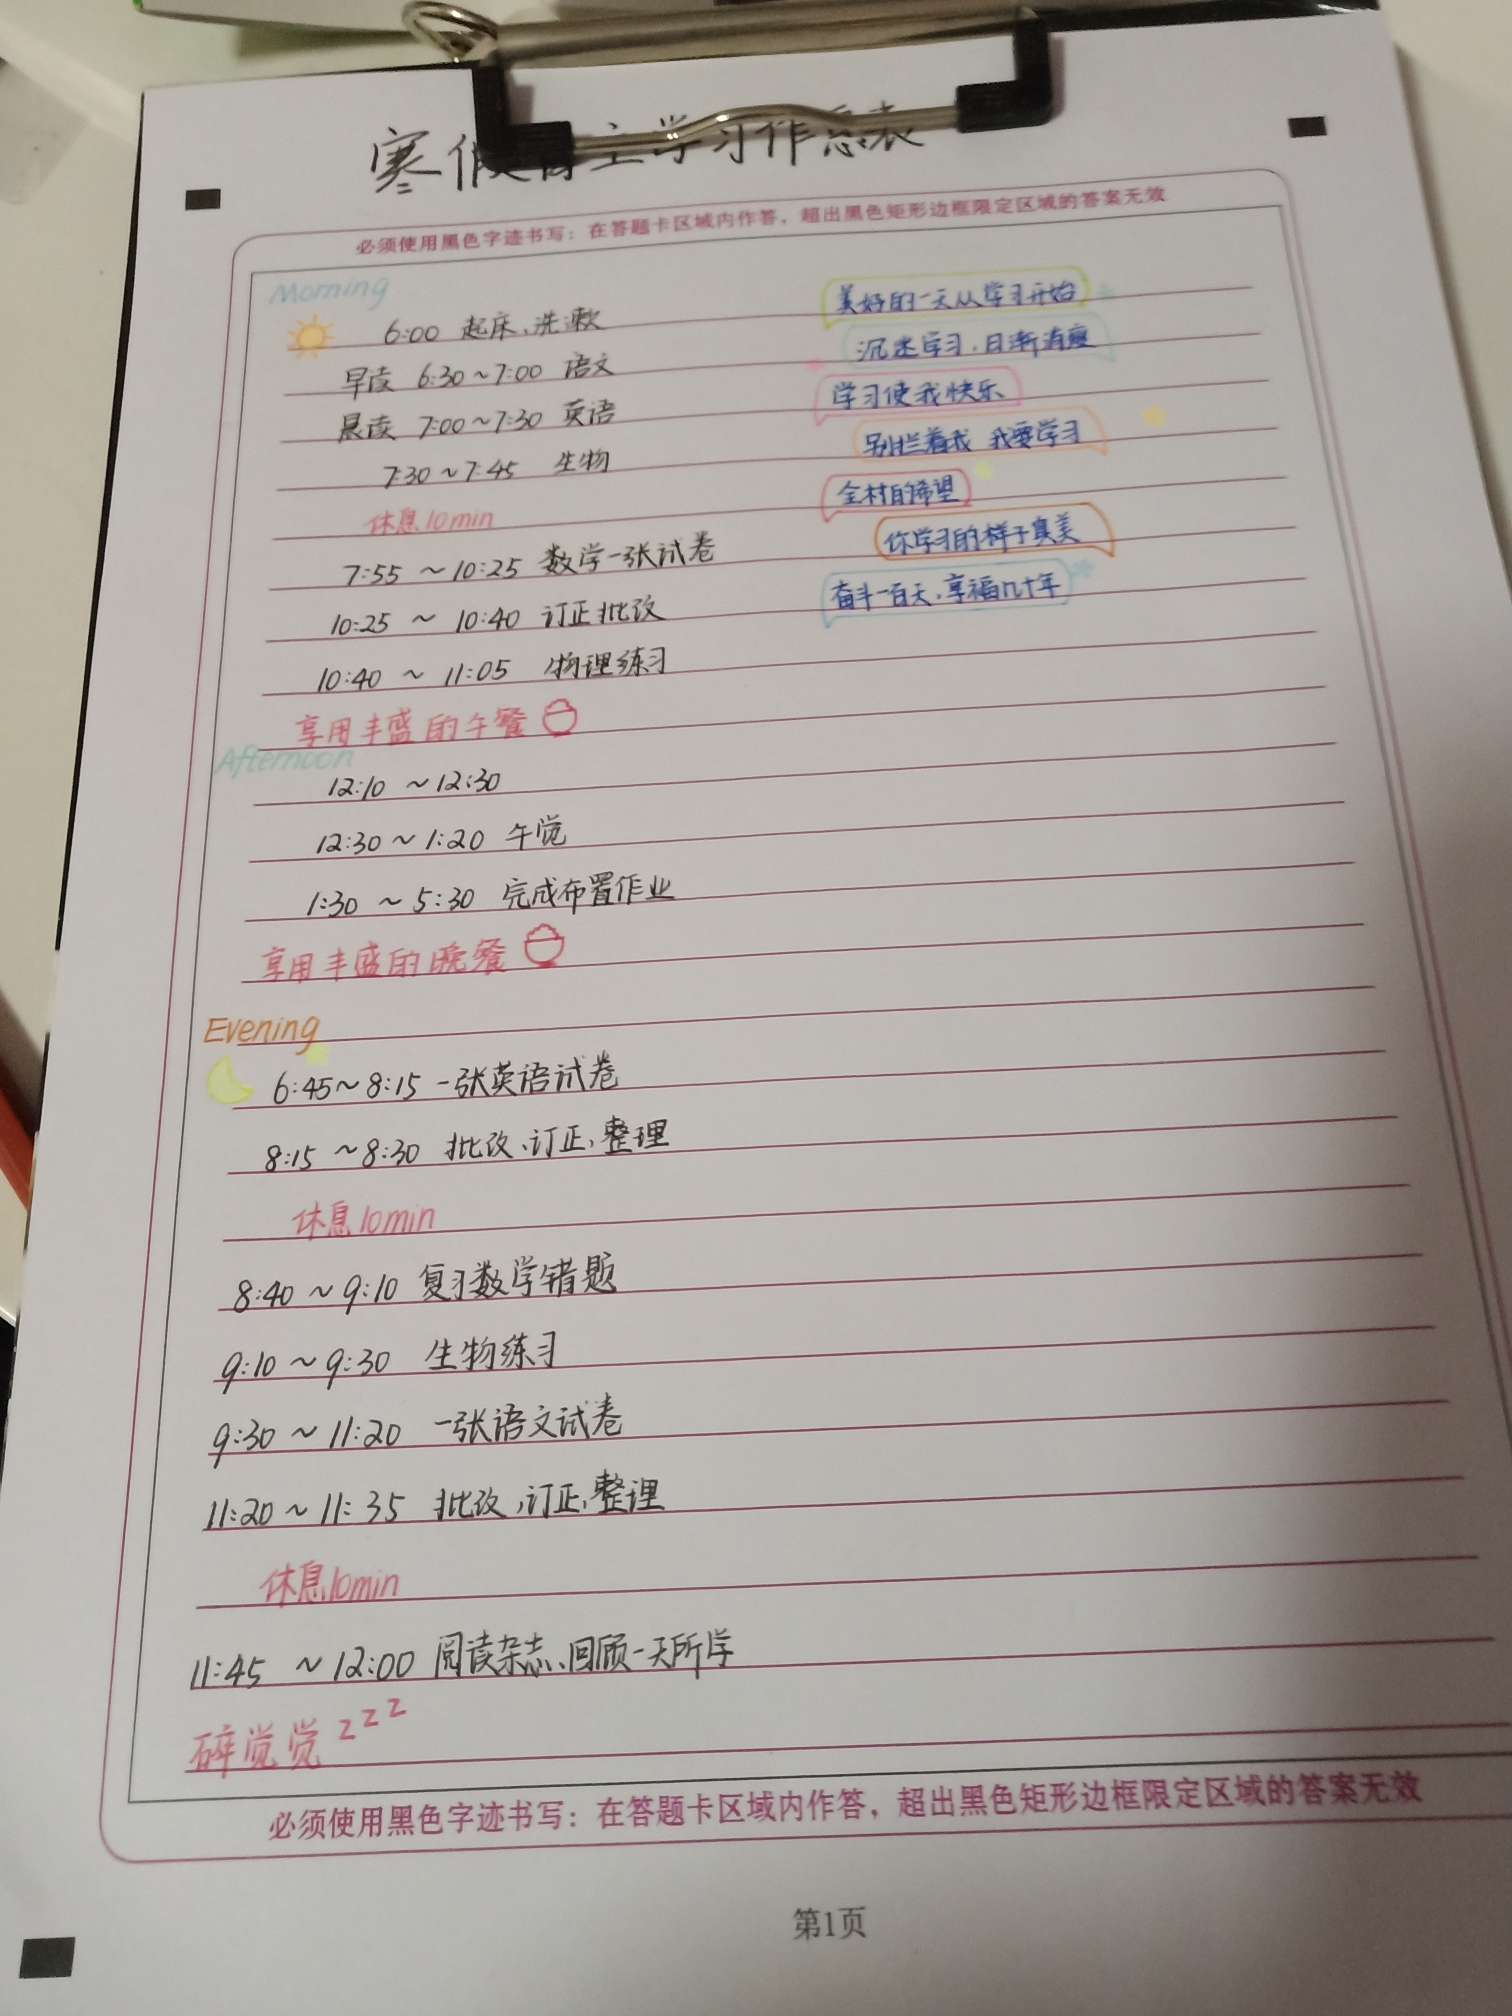 寒假自主学习作息表
必须使用黑色字迹书写：在答题卡区域内作答，超出黑色矩形边框限定区域的答案无效
Morning
6:00 起床、洗漱
早读 6:30～7:00 语文
晨读 7:00～7:30 英语
7:30～7:45 生物
休息10min
7:55 ～10:25 数学一张试卷
10:25 ～ 10:40 订正批改
10:40 ～ 11:05 物理练习
享用丰盛的午餐
美好的一天从学习开始
沉迷学习，日渐消瘦
学习使我快乐
别拦着我 我要学习
全村的希望
你学习的样子真美
奋斗一百天，享福几十年
Afternoon
12:10 ～12:30
12:30～1:20 午觉
1:30 ～5:30 完成布置作业
享用丰盛的晚餐
Evening
6:45～8:15 一张英语试卷
8:15 ～8:30 批改、订正、整理
休息10min
8:40 ～9:10 复习数学错题
9:10～9:30 生物练习
9:30 ～11:20 一张语文试卷
11:20～11:35 批改、订正、整理
休息10min
11:45 ～12:00 阅读杂志、回顾一天所学
碎觉觉zzz
必须使用黑色字迹书写：在答题卡区域内作答，超出黑色矩形边框限定区域的答案无效
第1页